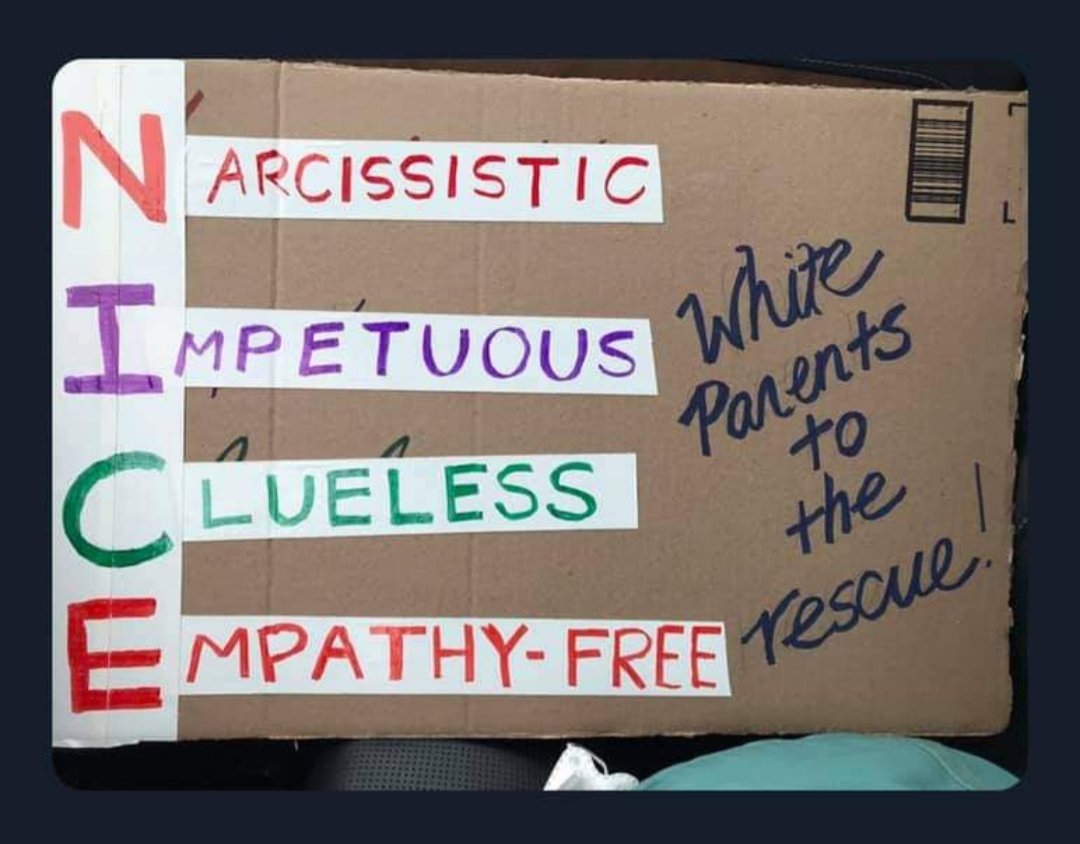 NARCISSISTIC
IMPETUOUS
CLUELESS
EMPATHY-FREE
White
Parents
to
the
rescue!